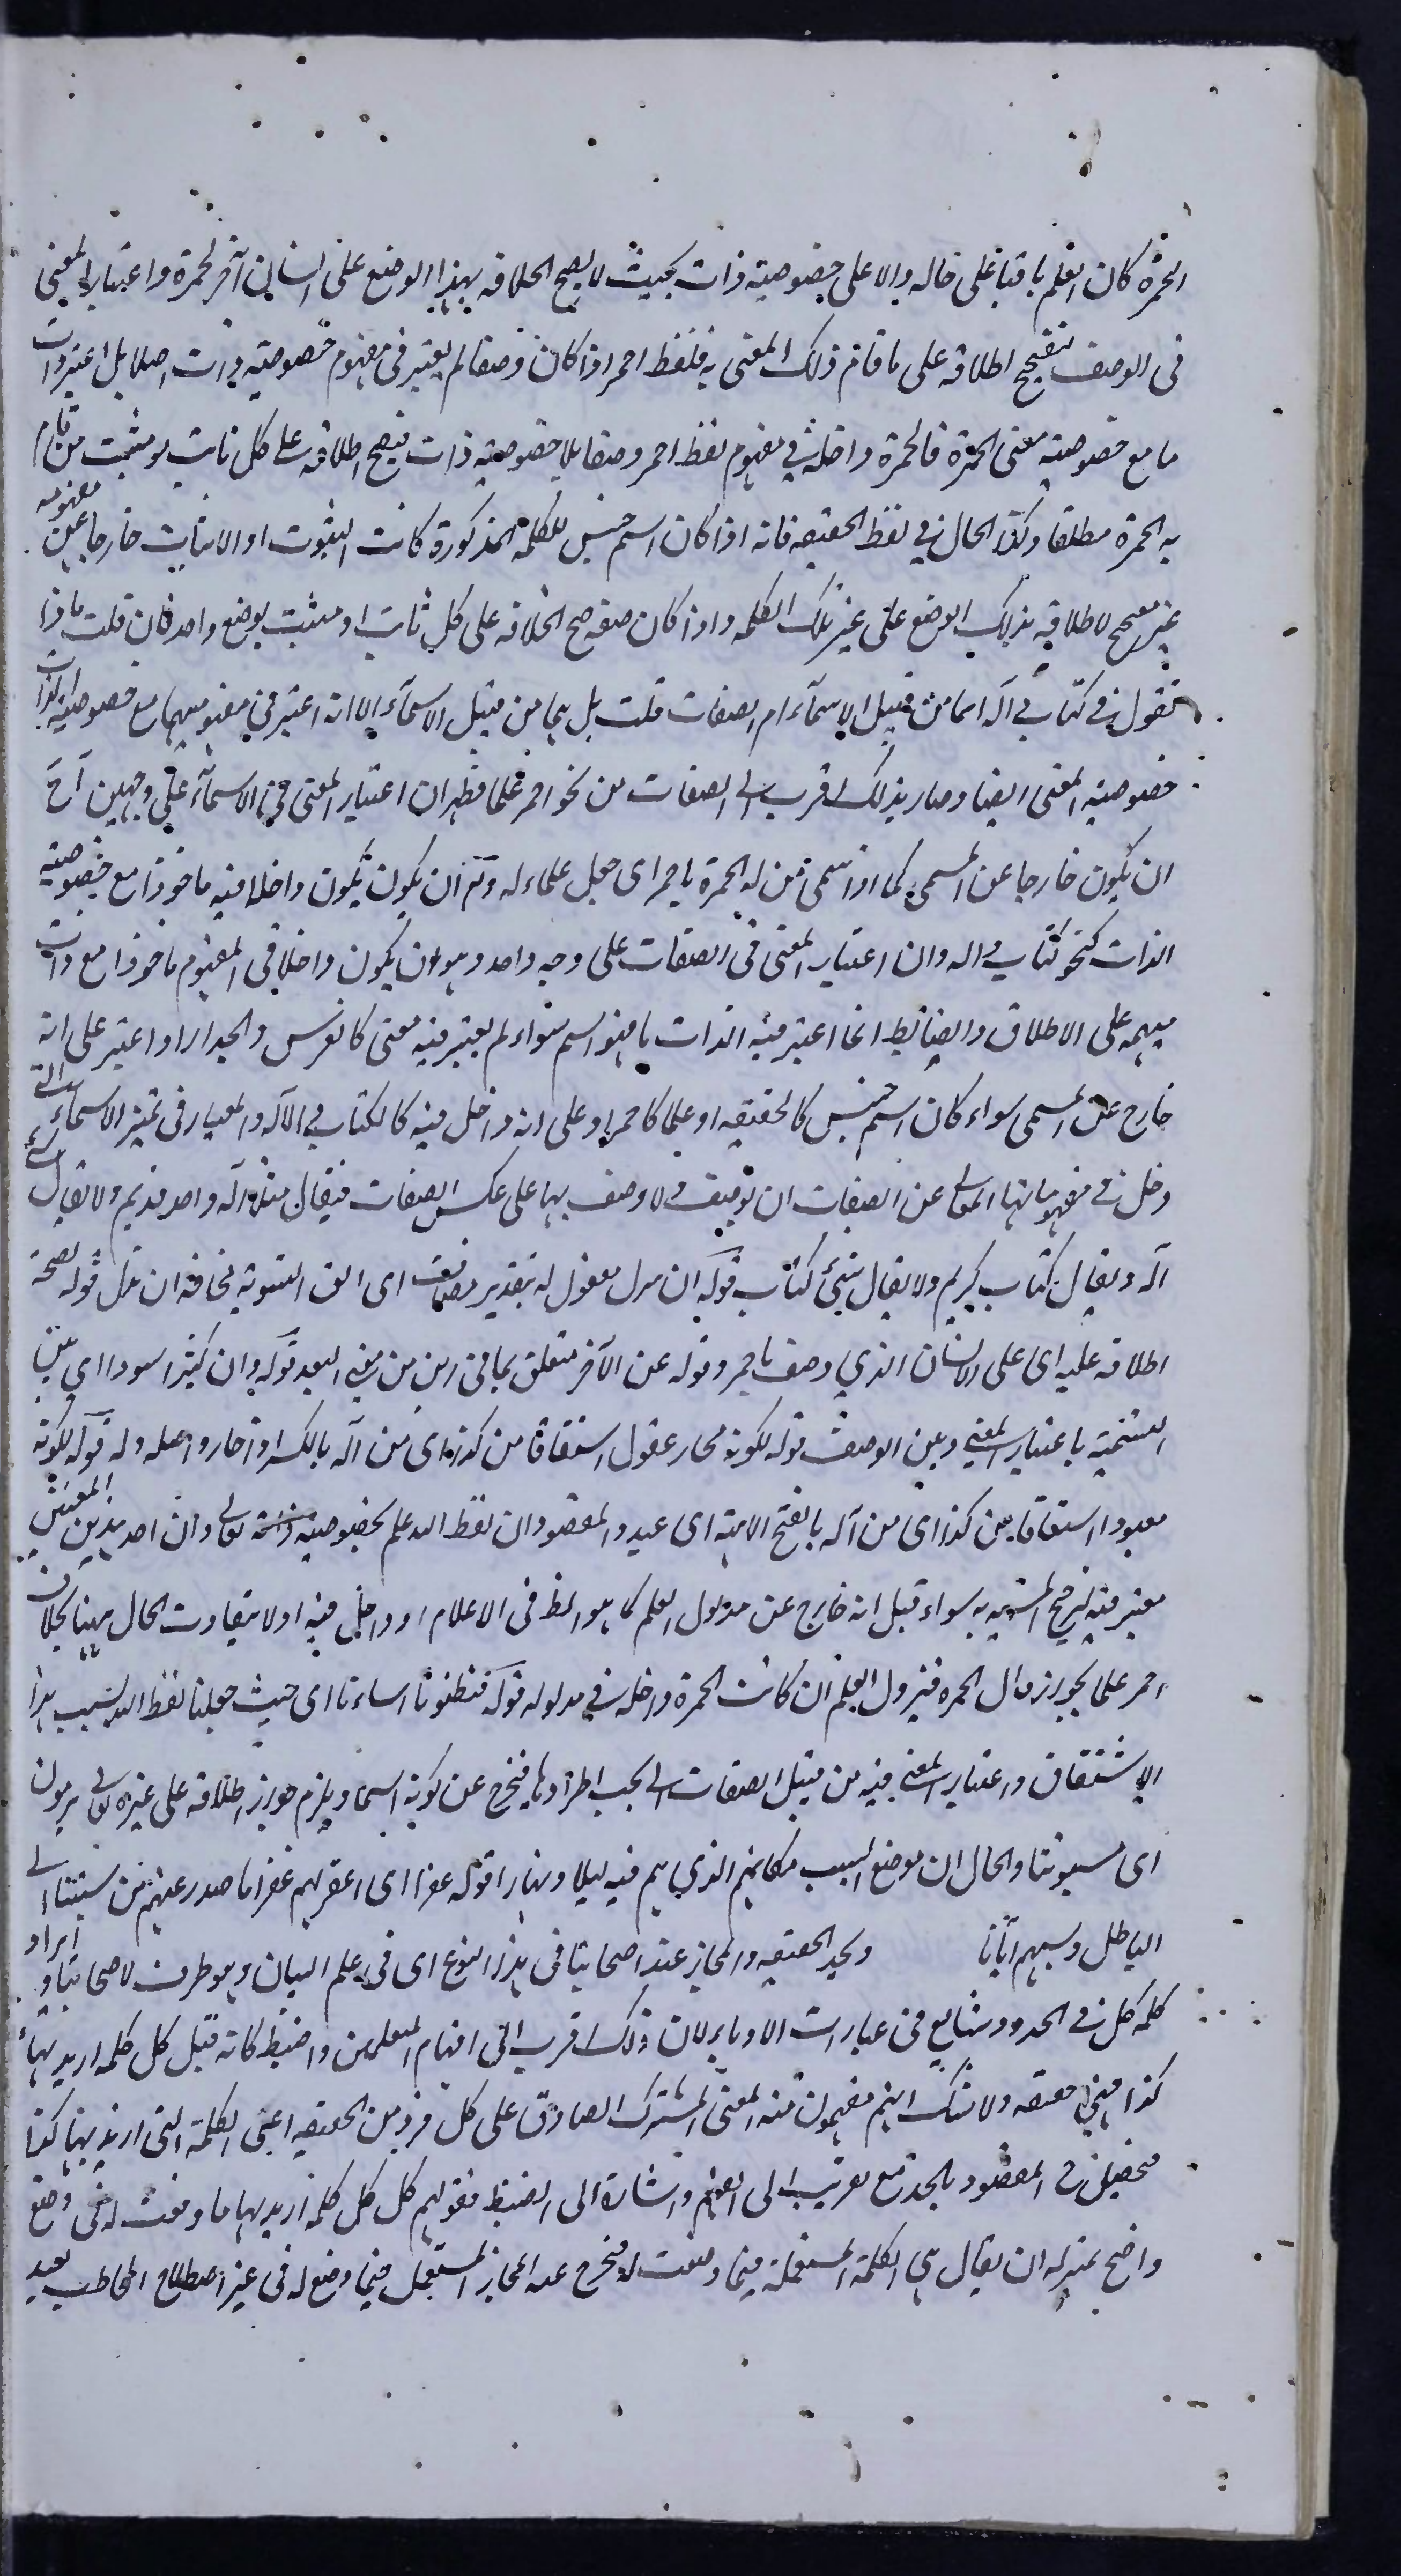 الحمرة كان العلم باقيا على حاله دالا على خصوصية ذات بحيث لا يصح اطلاقه بهذا الوضع على انسان آخر لحمرة واعتبار المعنى
فى الوصف يصحح اطلاقه على ما قام ذلك المعنى به فلفظ احمر اذا كان وصفا لم يعتبر فى مفهوم خصوصية ذات اصلا بل اعتبر ذات
ما مع خصوصية معنى الحمرة فالحمرة داخلة فى مفهوم لفظ احمر وصفا بلا خصوصية ذات فيصح اطلاقه على كل ما قام
به الحمرة مطلقا وكذا الحال فى لفظ الحقيقه فانه اذا كان اسم جنس للكلمة المذكورة كانت الثبوت او الاثبات خارجا عن مفهومه
غير مصحح لاطلاقه بذلك الوضع على غير تلك الكلمه واذا كان صفه صح اطلاقه على كل ثابت او مثبت بوضع واحد فان قلت ماذا
تقول فى كتاب وآله اهما من قبيل الاسماء ام الصفات قلت بل هما من قبيل الاسماء الا انه اعتبر فى مفهوميهما مع خصوصية الذات
خصوصية المعنى ايضا وصار بذلك اقرب الى الصفات من نحو احمر علما فظهر ان اعتبار المعنى فى الاسماء على وجهين آح
ان يكون خارجا عن المسمى كما اذا سمى من له الحمرة باحمر اى جعل علما له و ان يكون يكون داخلا فيه ماخوذا مع خصوصية
الذات كنحو كتاب واله وان اعتبار المعنى فى الصفات على وجه واحد وهو ان يكون داخلا فى المفهوم ماخوذا مع ذات
مبهمه على الاطلاق والضابط انما اعتبر فيه الذات ما هو اسم سواء لم يعتبر فيه معنى كالفرس والجدار او اعتبر على انه
خارج عن المسمى سواء كان اسم جنس كالحقيقه او علما كاحمر او على انه داخل فيه كالكتاب والآله والمعيار فى تميز الاسماء التى
دخل فى مفهوماتها المعانى عن الصفات ان توصف ولا وصف بها على عكس الصفات فيقال مثلا آله واحد قديم ولا يقال شئ
آله ويقال كتاب كريم ولا يقال شئ كتاب قوله ان مفعول له بتقدير مضاف اى مخافة ان قوله لصحة
اطلاقه عليه اى على الانسان الذى وصف باحمر وقوله عن الآخر متعلق بما فى من من معنى البعد قوله وان كثيرا سووا اى بين
التسميه باعتبار المعنى وبين الوصف قوله لكونه محار عقول اشتقاقا من كذا اى من آله بالكسر اذا حار واصله وله قوله لكونه
معبودا اشتقاقا من كذا اى من آله بالفتح الاهة اى عبد والمقصود ان لفظ الله علم لخصوصية ذاته تعالى وان احد هذين المعنيين
معتبر فيه لترجيح التسميه به سواء قيل انه خارج عن مدلول العلم كما هو الظ فى الاعلام او داخل فيه اذ لا يتفاوت الحال ههنا بخلاف
احمر علما لجواز زوال الحمره فيزول العلم ان كانت الحمرة داخله فى مدلوله قوله فنظنونا اساءنا اى حيث جعلنا لفظ الله بسبب هذا
الاشتقاق واعتبار المعنى فيه من قبيل الصفات التى يجب اطرادها فيخرج عن كونه اسما ويلزم جواز اطلاقه على غيره تعالى يرمون
اى مسبوننا والحال ان موضع السبب مكانهم الذى هم فيه ليلا ونهارا قوله غفرا اى اغفر لهم غفرا ما صدر عنهم من نسبتنا الى
الباطل وسبهم ايانا ويحد الحقيقه والمجاز عند اصحابنا فى هذا النوع اى فى علم البيان وهو ظرف لاصحابنا وايراد
كلمه كل فى الحدود شايع فى عبارات الادباء لان ذلك اقرب الى افهام المتعلمين واضبط كانه قيل كل كلمه اريد بها
كذا فهى حقيقه ولا شك انهم يفهمون منه المعنى المشترك الصادق على كل فرد من الحقيقه اعنى الكلمة التى اريد بها كذا
فيحصل المقصود بالحد مع تقريب الى الفهم واشارة الى الضبط فقولهم كل كل كلمه اريد بها ما وقعت له فى وضع
واضح بمنزله ان يقال هى الكلمة المستعملة فيما وضعت له فيخرج عنه المجاز المستعمل فيما وضع له فى غير اصطلاح المخاطب بعيد